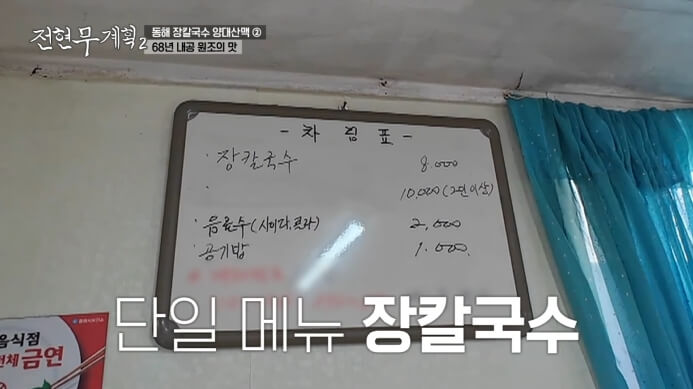 전현무계획2
동해 장칼국수 양대산맥 ②
68년 내공 원조의 맛
- 차림표 -
· 장칼국수 8,000
· 10,000 (2인 이상)
· 음료수 (사이다, 콜라) 2,000
· 공기밥 1,000
단일 메뉴 장칼국수
음식점
전체 금연